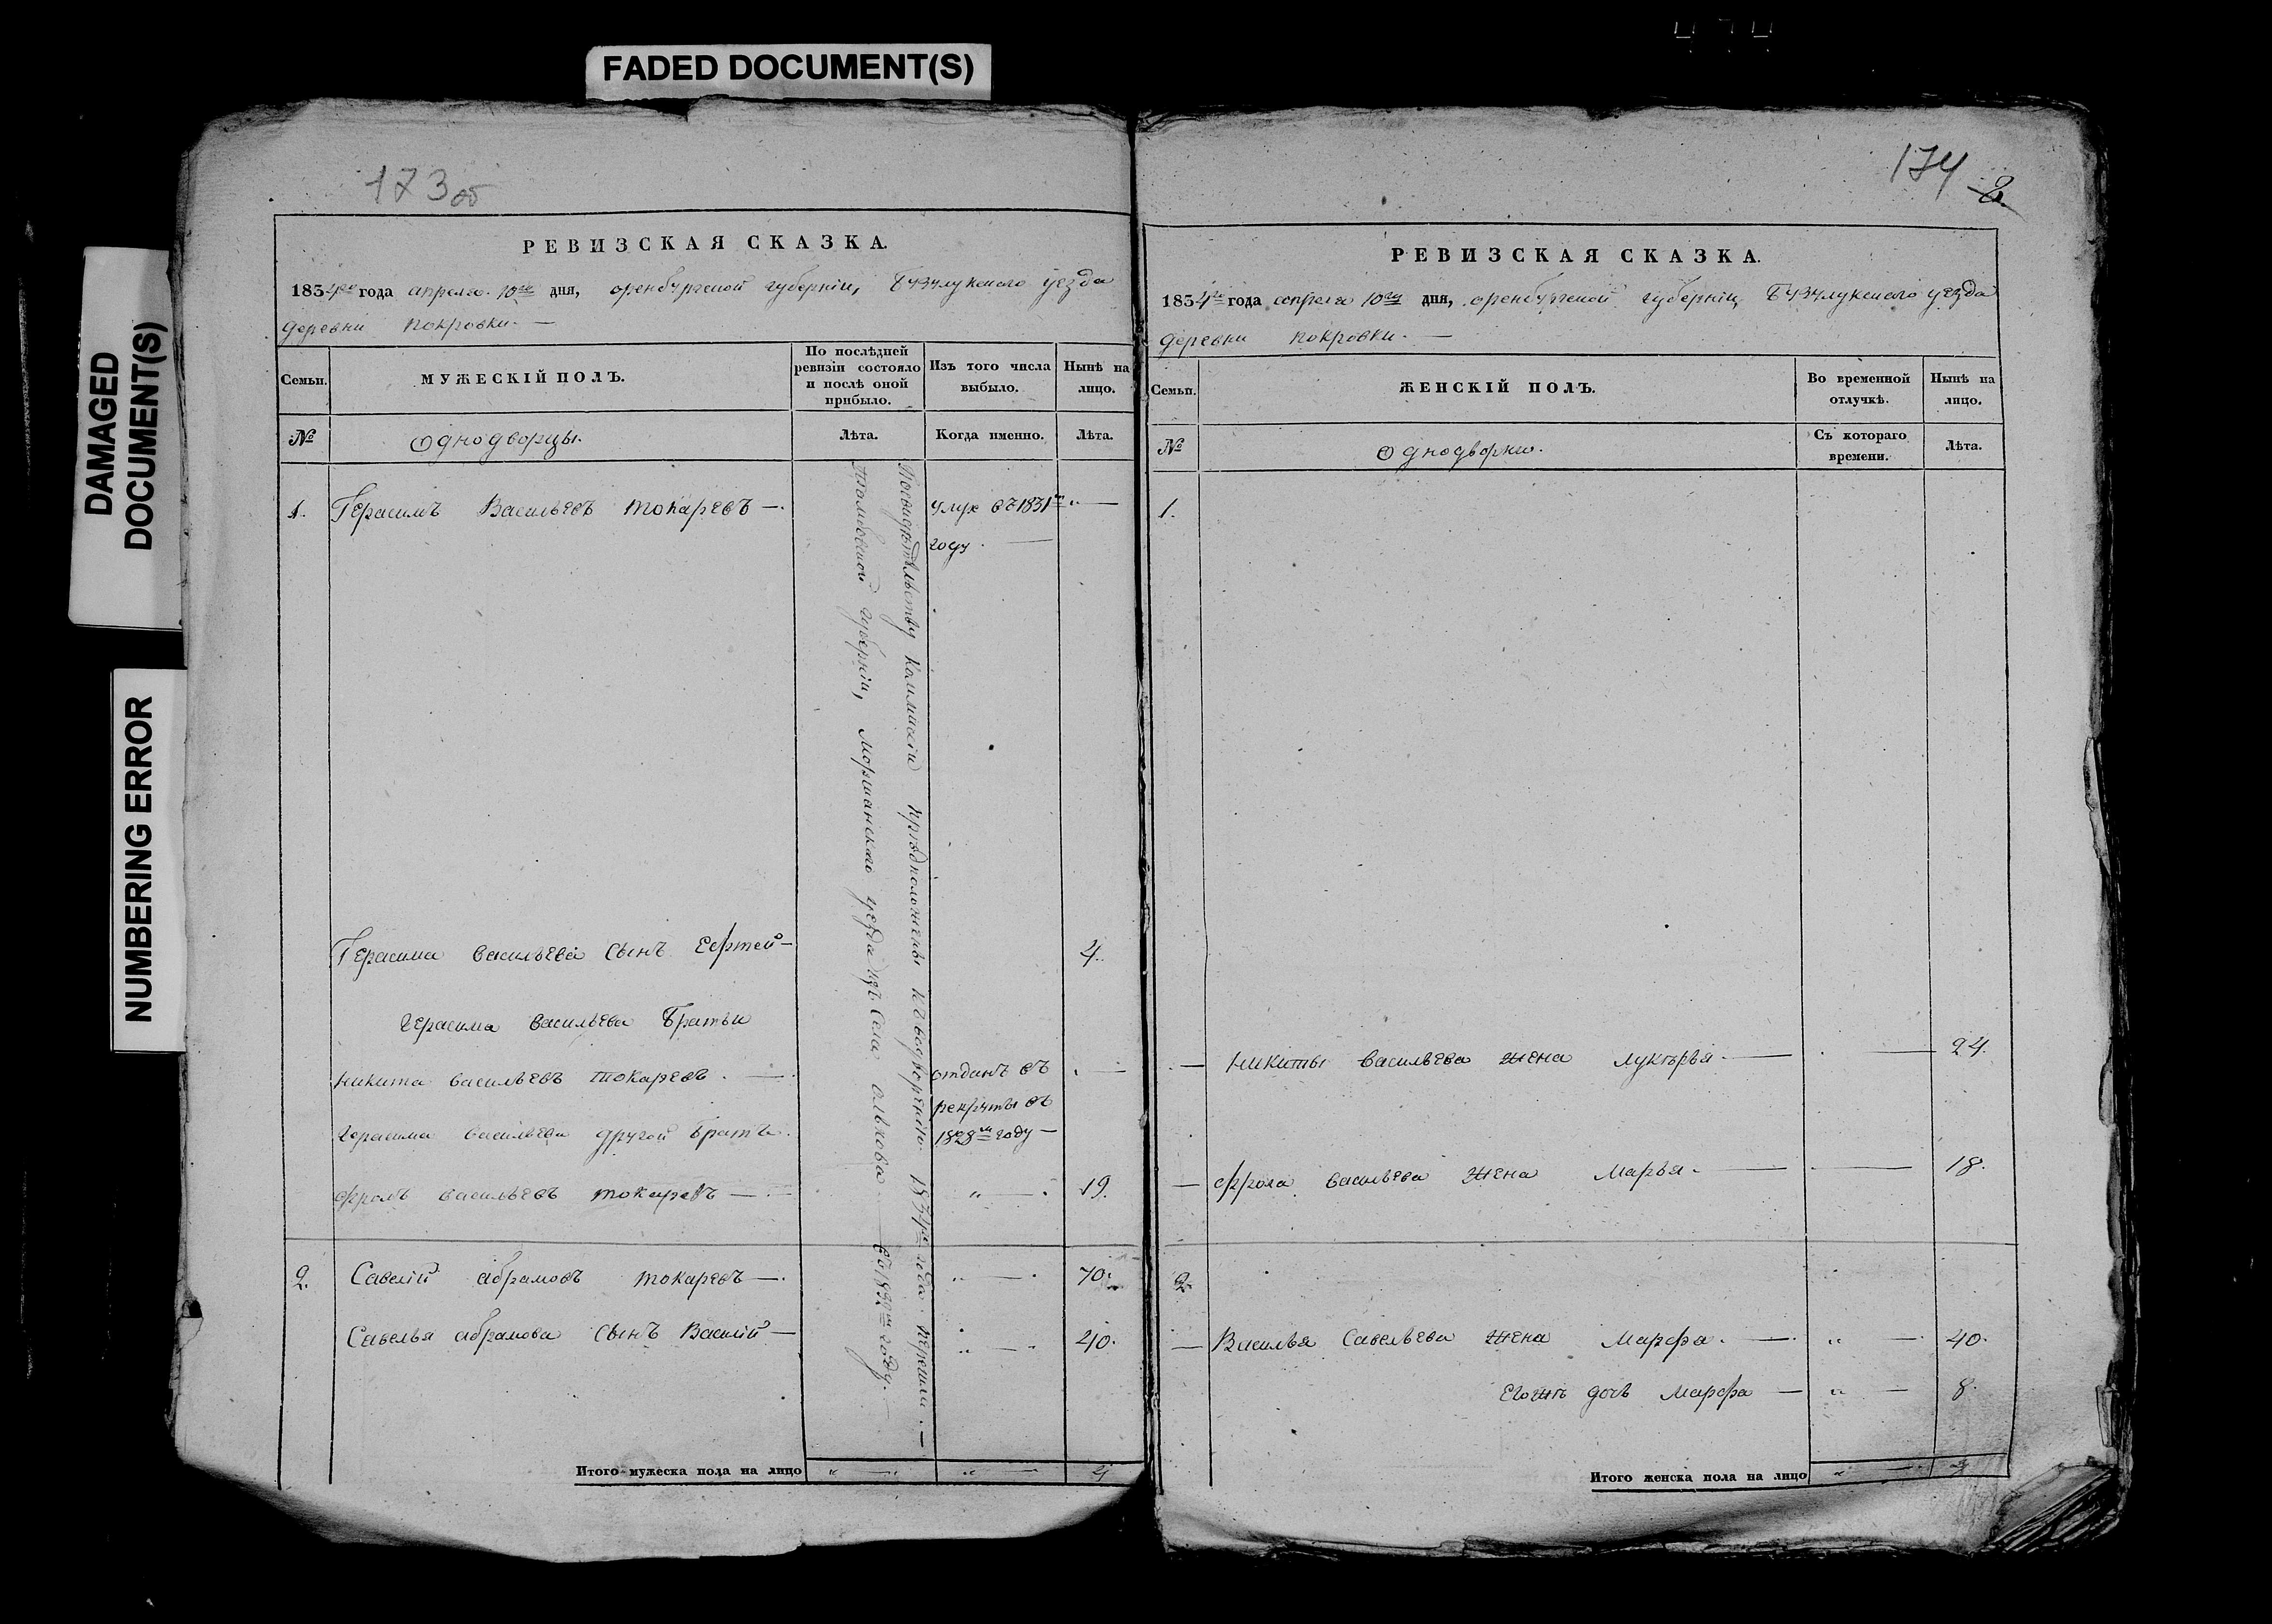 FADED DOCUMENT(S)
DAMAGED
DOCUMENT(S)
NUMBERING ERROR
173об
РЕВИЗСКАЯ СКАЗКА.
1834го года апреля 10го дня, оренбургской губернiи, бузулукскаго уезда
деревни покровки. —
Семьи.
МУЖЕСКІЙ ПОЛЪ.
По послѣдней
ревизіи состояло
и послѣ оной
прибыло.
Изъ того числа
выбыло.
Нынѣ на
лицо.
№
Однодворцы.
Лѣта.
Когда именно.
Лѣта.
Тамбовской губернiи, моршанскаго уезда изъ села
въ 1832м году. —
1834го года перешли. —
1. Герасимъ Васильевъ токаревъ —. умре въ 1831м „ —
году. —
Герасима васильева сынъ — 4.
герасима васильева братьи
никита васильевъ токаревъ. — отданъ въ
рекруты въ
герасима васильева другой братъ. 1828м году —
фролъ васильевъ токаревъ — „ — 19.
2. Савелiй абрамовъ токаревъ —. „ — 70.
Савелья абрамова сынъ Василiй — „ — 40.
Итого мужеска пола на лицо „ — „ „ — 4
174
2.
РЕВИЗСКАЯ СКАЗКА.
1834го года апреля 10го дня, оренбургской губернiи, бузулукскаго уезда
деревни покровки. —
Семьи.
ЖЕНСКІЙ ПОЛЪ.
Во временной
отлучкѣ.
Нынѣ на
лицо.
№
Однодворки.
Съ котораго
времени.
Лѣта.
1.
— никиты васильева жена лукерья. — — 24.
— фрола васильева жена марья. — — 18.
2.
— Василья савельева жена марфа. — „ — 40.
дочь марфа — „ — 8.
Итого женска пола на лицо „ —